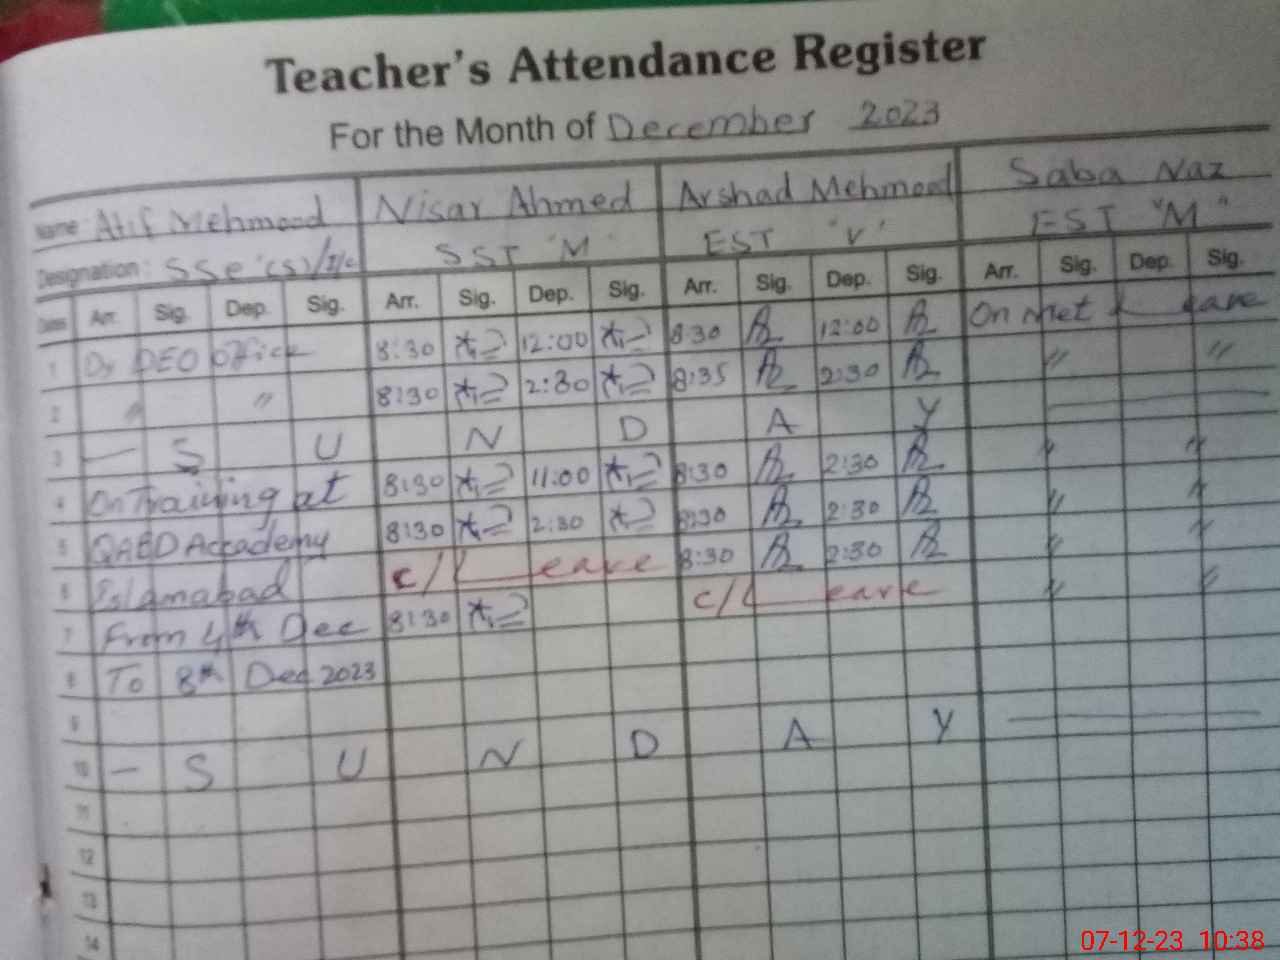 Teacher's Attendance Register
For the Month of December 2023
Name: Atif Mehmood Nisar Ahmed Arshad Mehmood Saba Naz
Designation: SSE (S)/I/c SST "M" EST "V" EST "M"
Dates Arr. Sig. Dep. Sig. Arr. Sig. Dep. Sig. Arr. Sig. Dep. Sig. Arr. Sig. Dep. Sig.
1 Dy DEO office 8:30 12:00 8:30 12:00 On Met Leave
2 " " 8:30 2:30 8:35 2:30 " "
3 — S U N D A Y
4 On Training at 8:30 11:00 8:30 2:30 " "
5 QAED Accademy 8:30 2:30 8:30 2:30 " "
6 Islamabad C/Leave 8:30 2:30 " "
7 From 4th Dec 8:30 C/Leave " "
8 To 8th Dec 2023
9
10 — S U N D A Y
11
12
13
14
07-12-23 10:38